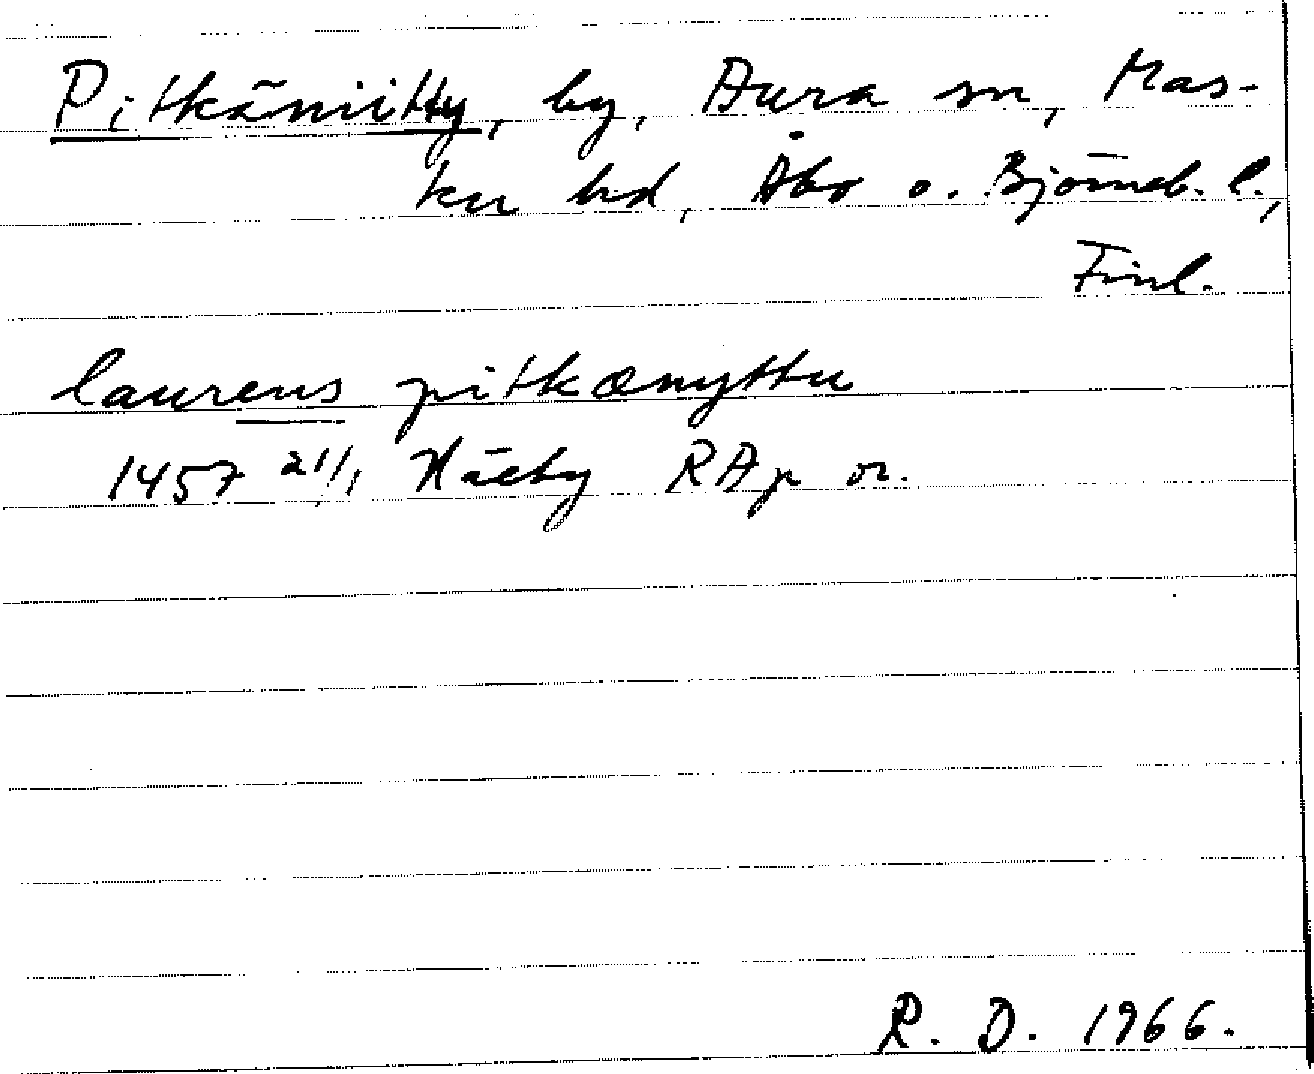 Pitkäniitty, by, Aura sn, Mas-
ku hd, Åbo o. Björneb. l.,
Finl.
laurens pitkænyttu
1457 21/1 Näsby RAp or.
R. D. 1966.